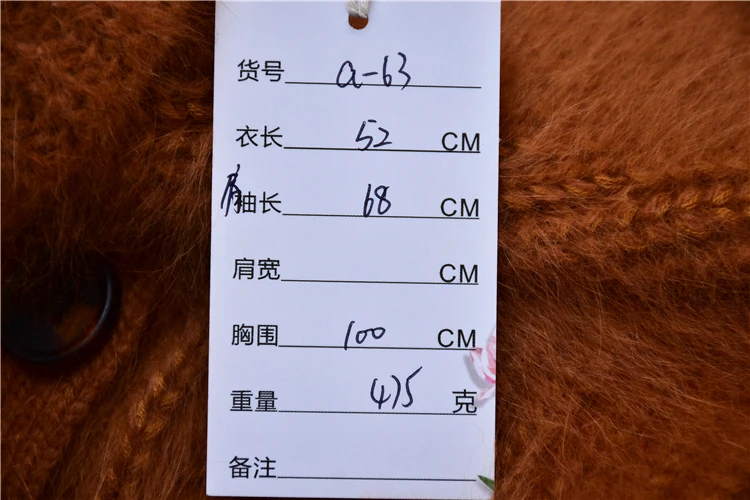 货号 a-63
衣长 52 CM
肩袖长 68 CM
肩宽 CM
胸围 100 CM
重量 475 克
备注